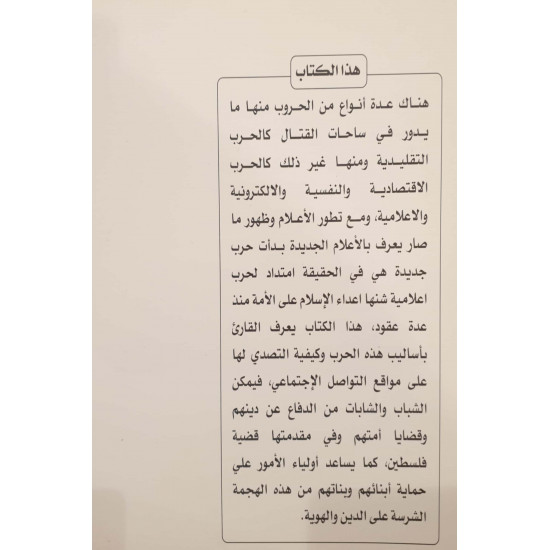 هذا الكتاب
هناك عدة أنواع من الحروب منها ما
يدور في ساحات القتال كالحرب
التقليدية ومنها غير ذلك كالحرب
الاقتصادية والنفسية والالكترونية
والاعلامية، ومع تطور الأعلام وظهور ما
صار يعرف بالأعلام الجديدة بدأت حرب
جديدة هي في الحقيقة امتداد لحرب
اعلامية شنها اعداء الإسلام على الأمة منذ
عدة عقود، هذا الكتاب يعرف القارئ
بأساليب هذه الحرب وكيفية التصدي لها
على مواقع التواصل الإجتماعي، فيمكن
الشباب والشابات من الدفاع عن دينهم
وقضايا أمتهم وفي مقدمتها قضية
فلسطين، كما يساعد أولياء الأمور علي
حماية أبنائهم وبناتهم من هذه الهجمة
الشرسة على الدين والهوية.